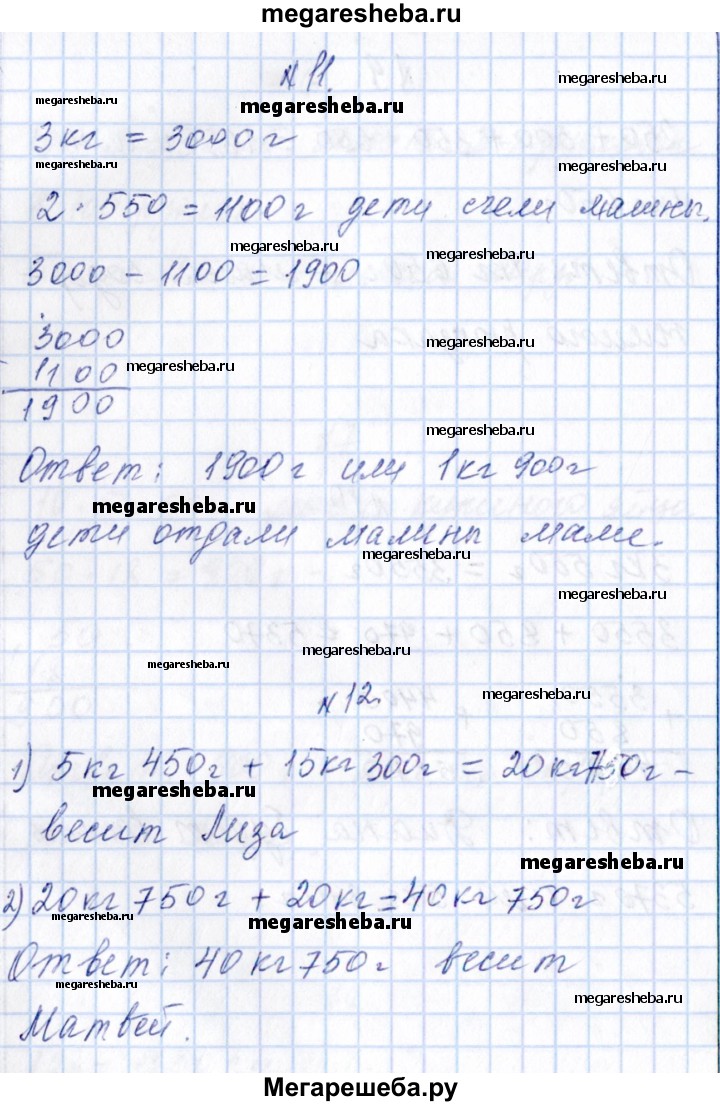 megaresheba.ru
N 11.
megaresheba.ru
megaresheba.ru
megaresheba.ru
3кг = 3000г
megaresheba.ru
megaresheba.ru
2 · 550 = 1100г дети съели малины.
megaresheba.ru
megaresheba.ru
3000 - 1100 = 1900
3000
megaresheba.ru
1100
megaresheba.ru
1900
megaresheba.ru
Ответ: 1900г или 1кг 900г
megaresheba.ru
дети отдали малины маме.
megaresheba.ru
megaresheba.ru
megaresheba.ru
N 12.
megaresheba.ru
1) 5кг 450г + 15кг 300г = 20кг 750г -
megaresheba.ru
весит Лиза
megaresheba.ru
2) 20кг 750г + 20кг = 40кг 750г
megaresheba.ru
megaresheba.ru
Ответ: 40кг 750г весит
megaresheba.ru
megaresheba.ru
Матвей.
Мегарешеба.ру